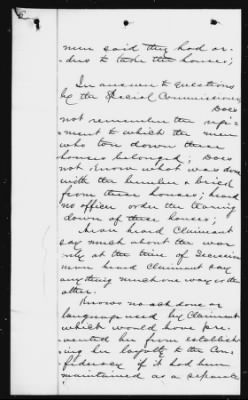 men said they had or-
ders to take the houses;
In answer to questions
by the Special Commissioner
Does
not remember the regi-
ment to which the men
who tore down these
houses belonged; Does
not know what was done
with the lumber & brick
from these houses; heard
no officer order the tearing
down of these houses;
Never heard Claimant
say much about the war
only at the time of Secession
never heard Claimant say
anything much one way or the
other.
Knows no act done or
language used by Claimant
which would have pre-
vented her from establish-
ing her loyalty to the Con-
federacy if it had been
maintained as a separate